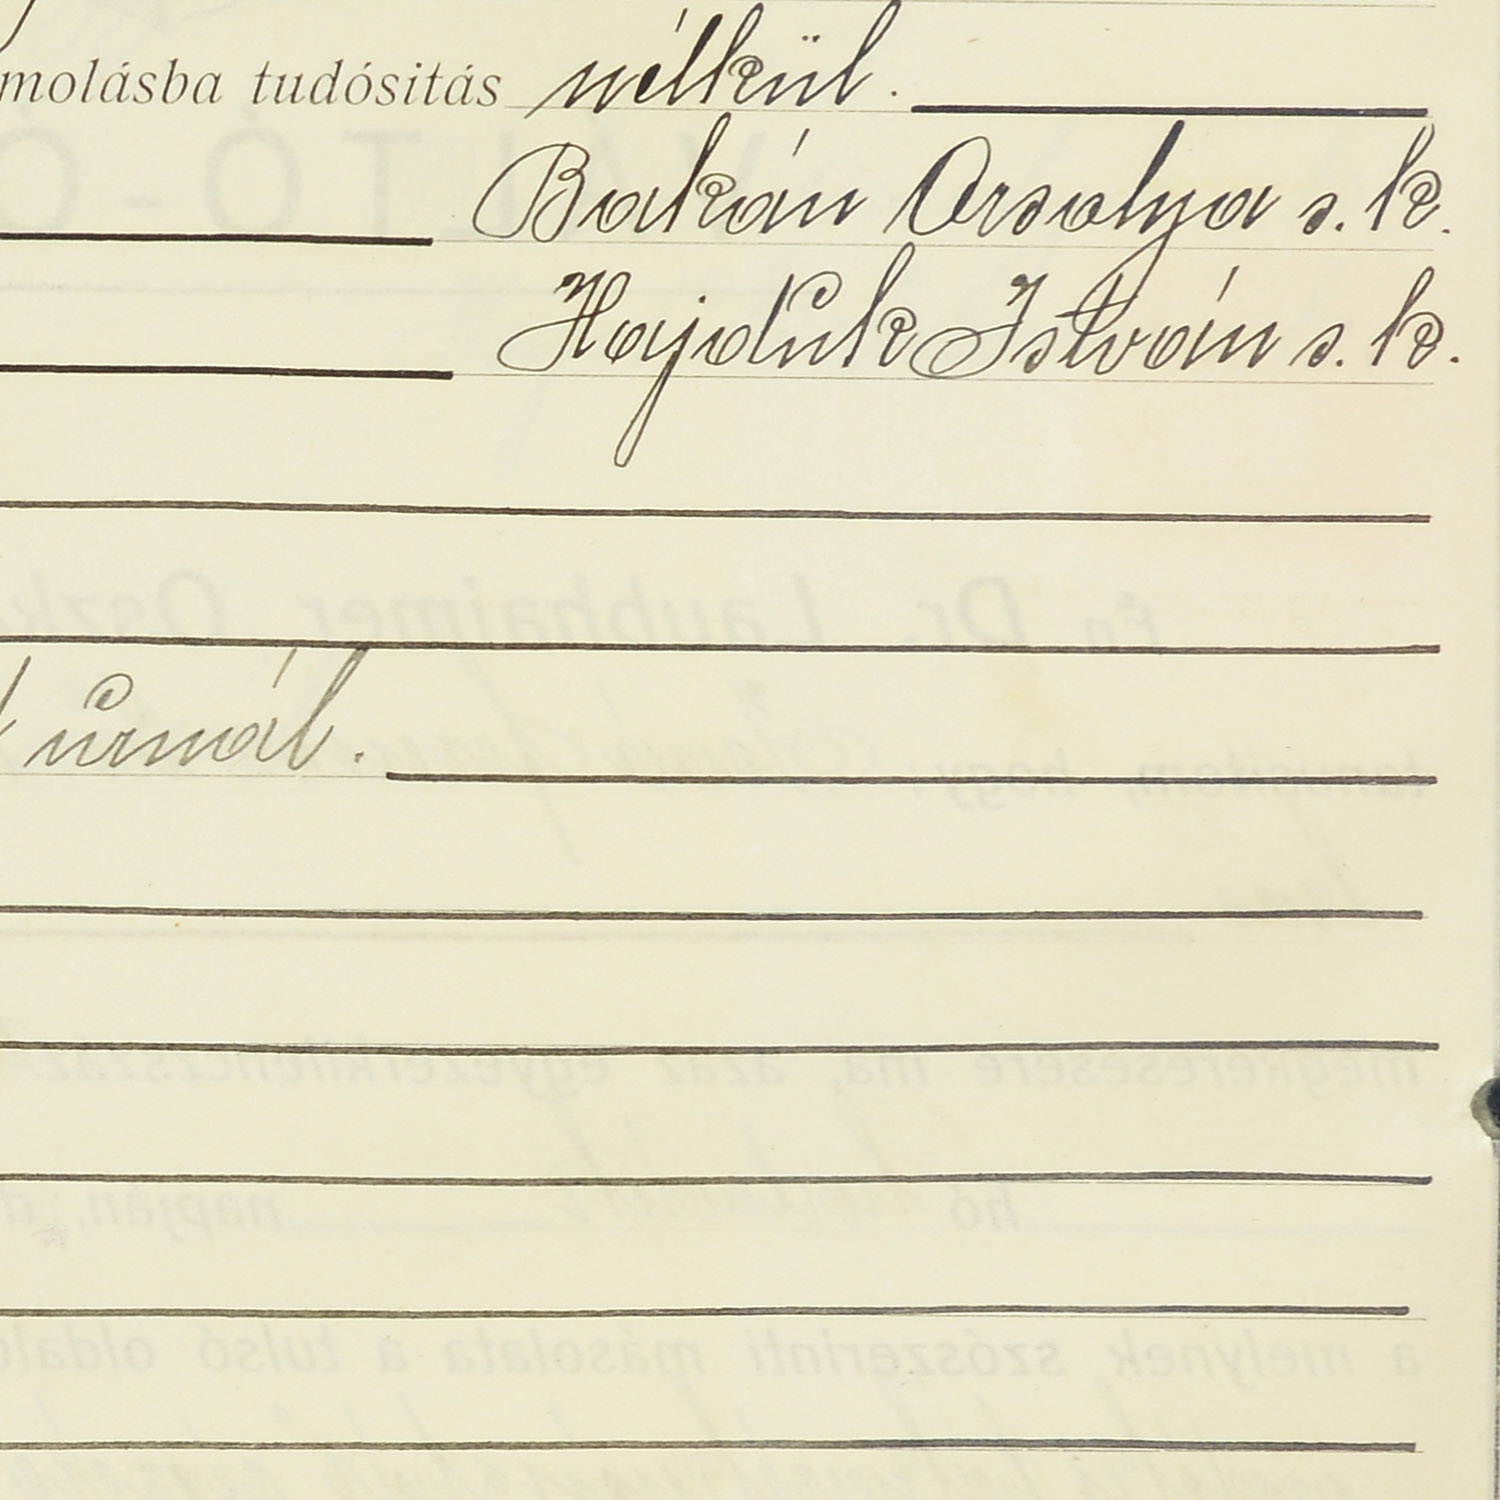 molásba tudósitás nélkül.
Bakán Orsolya s. k.
Hajduk István s. k.
úrnál.